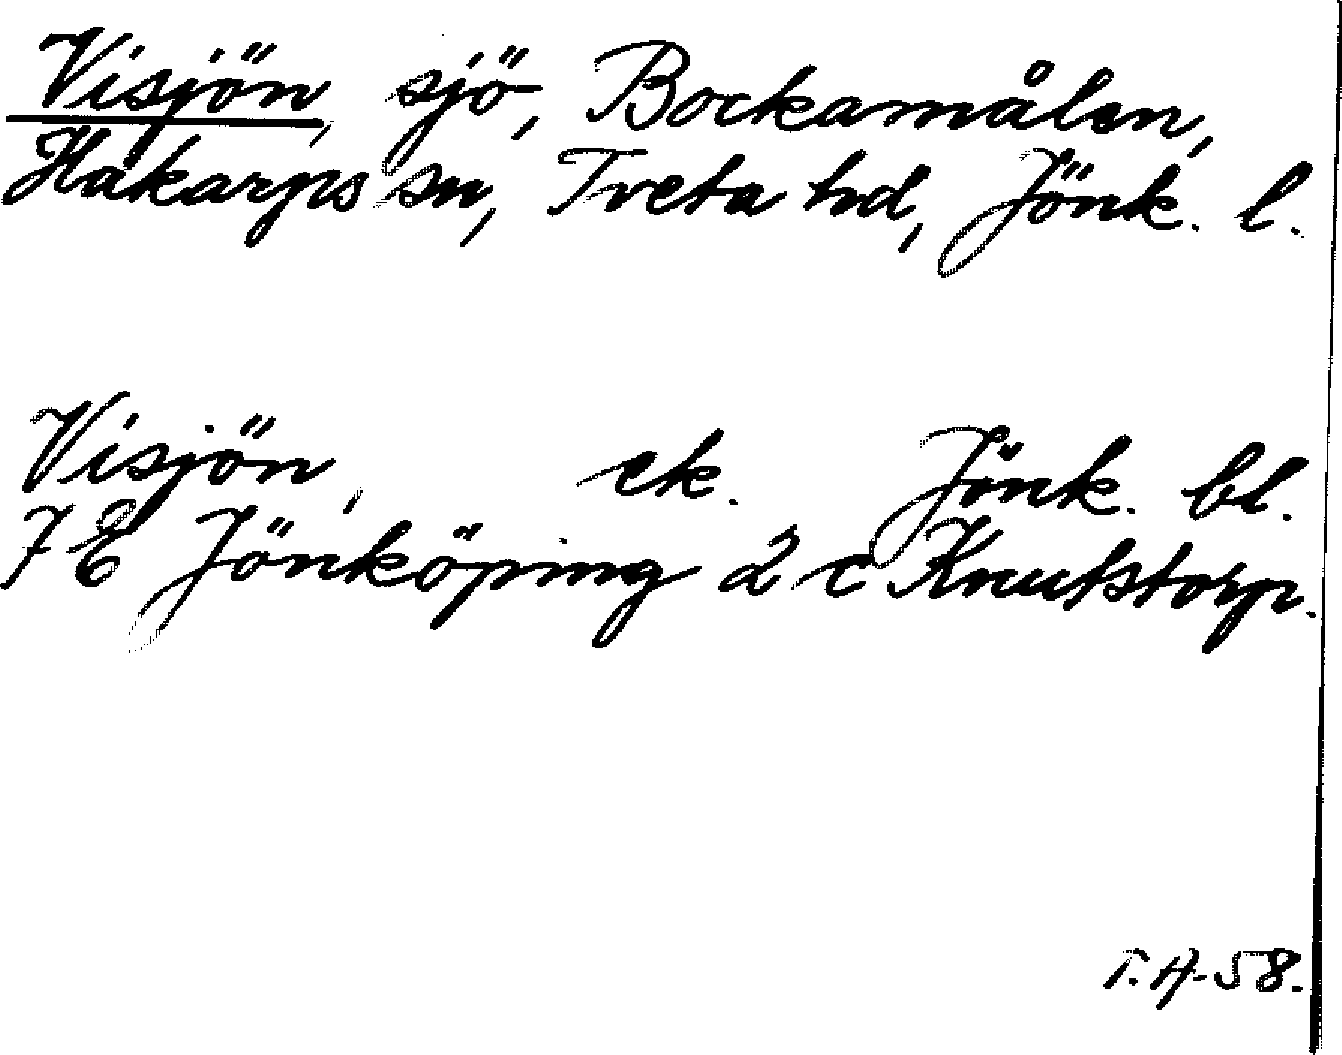 Visjön, sjö, Bockamålen,
Hakarps sn, Tveta hd, Jönk. l.
Visjön, ek. Jönk. bl.
7 E Jönköping 2 c Knutstorp.
T. A-58.